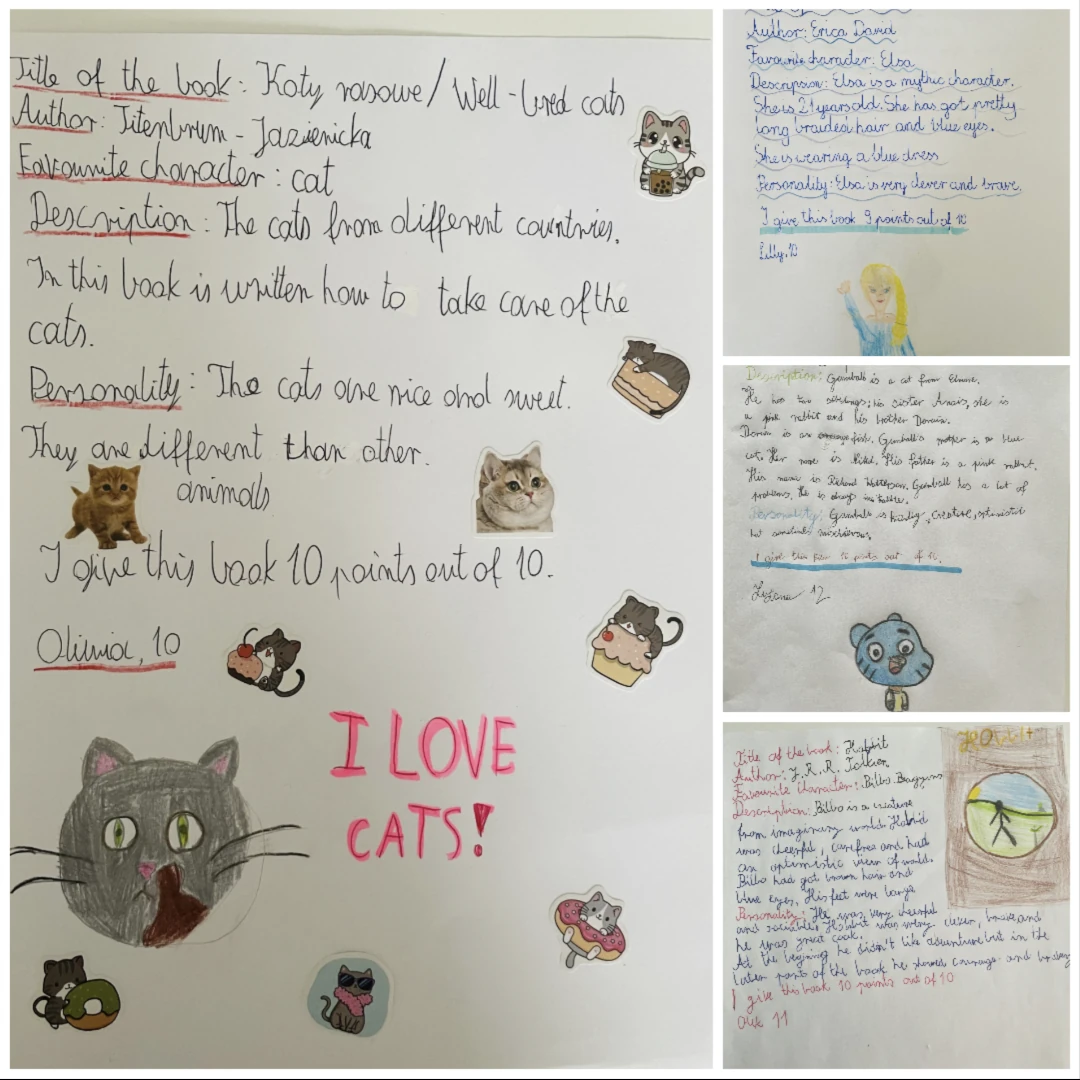 Title of the book: Koty rasowe / Well-bred cats
Author: Titenbrum-Jazienicka
Favourite character: cat
Description: The cats from different countries.
In this book is written how to take care of the
cats.
Personality: The cats are nice and sweet.
They are different than other.
animals
I give this book 10 points out of 10.
Oliwia, 10
I LOVE
CATS!
Author: Erica David
Favourite character: Elsa
Description: Elsa is a mythic character.
She is 21 years old. She has got pretty
long braided hair and blue eyes.
She is wearing a blue dress
Personality: Elsa is very clever and brave.
I give this book 9 points out of 10
Lilly, 10
Description: Gumball is a cat from Elmore.
He has two siblings; his sister Anais, she is
a pink rabbit and his brother Darwin.
Darwin is an orange fish. Gumball's mother is a blue
cat. Her name is His father is a pink rabbit.
His name is Richard Watterson. Gumball has a lot of
problems. He is always in trouble.
Personality: Gumball is , creative, optimistic
but sometimes mischievous.
I give this 10 points out of 10.
Zuzanna 12
Hobbit
Title of the book: Hobbit
Author: J. R. R. Tolkien
Favourite Character: Bilbo Baggins
Description: Bilbo is a creature
from imaginary world. Hobbit
was cheerful, carefree and had
an optimistic view of world.
Bilbo had got brown hair and
blue eyes, His feet were large
Personality: He was very cheerful
and sociable. Hobbit was very clever, brave and
he was great cook.
At the beginning he didn't like adventure but in the
later part of the book he showed courage and
I give this book 10 points out of 10
Olek 11